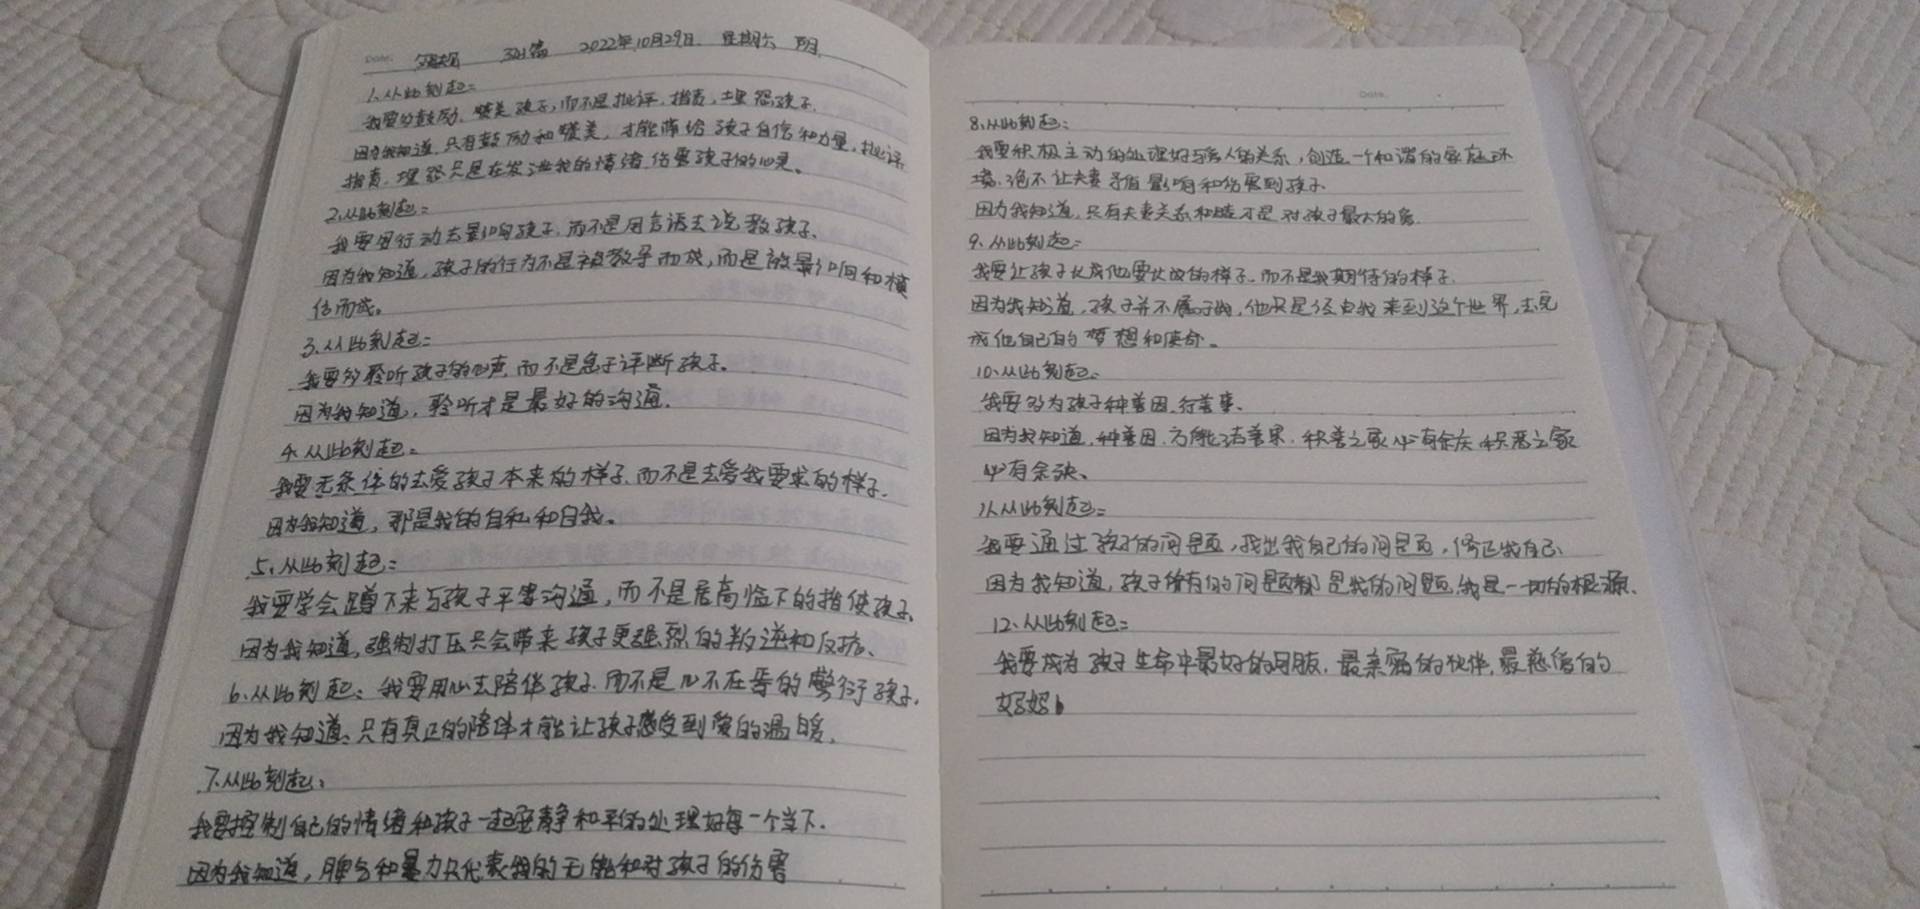 Date.
321篇 2022年10月29日 星期六
1、从此刻起:
我要多鼓励、赞美孩子,而不是批评、指责、埋怨孩子.
因为我知道,只有鼓励和赞美,才能带给孩子自信和力量,批评、
指责、埋怨只是在发泄我的情绪,伤害孩子的心灵。
2、从此刻起:
我要用行动去影响孩子,而不是用言语去说教孩子、
因为我知道,孩子的行为不是被教导而成,而是被影响和模
仿而成。
3、从此刻起:
我要多聆听孩子的心声,而不是急于评断孩子。
因为我知道,聆听才是最好的沟通.
4、从此刻起:
我要无条件的去爱孩子本来的样子,而不是去爱我要求的样子.
因为我知道,那是我的自私和自我。
5、从此刻起:
我要学会蹲下来与孩子平等沟通,而不是居高临下的指使孩子、
因为我知道,强制打压只会带来孩子更强烈的叛逆和反抗、
6、从此刻起:我要用心去陪伴孩子.而不是心不在焉的敷衍孩子.
因为我知道、只有真正的陪伴才能让孩子感受到爱的温暖.
7、从此刻起:
我要控制自己的情绪和孩子一起安静和平的处理好每一个当下.
因为我知道,脾气和暴力只代表我的无能和对孩子的伤害
Date.
8、从此刻起:
我要积极主动的处理好与家人的关系,创造一个和谐的家庭环
境、绝不让夫妻矛盾影响和伤害到孩子.
因为我知道,只有夫妻关系和睦才是对孩子最大的爱.
9、从此刻起:
我要让孩子长成他要长成的样子、而不是我期待的样子.
因为我知道,孩子并不属于我,他只是经由我来到这个世界,去完
成他自己的梦想和使命。
10、从此刻起:
我要多为孩子种善因、行善事、
因为我知道,种善因、方能结善果.积善之家必有余庆 积恶之家
必有余殃、
从此刻起:
我要通过孩子的问题,找出我自己的问题,修正我自己、
因为我知道,孩子所有的问题都是我的问题,我是一切的根源、
12、从此刻起:
我要成为孩子生命中最好的朋友,最亲密的伙伴,最慈爱的
妈妈